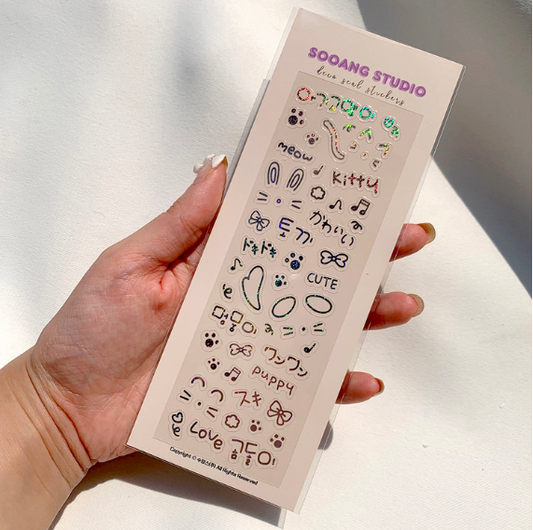 SOOANG STUDIO
deco seal stickers
meow
kitty
かわいい
토끼
ドキドキ
CUTE
멍멍이
ワンワン
puppy
スキ
Love
곰돌이
Copyright © All Rights Reserved